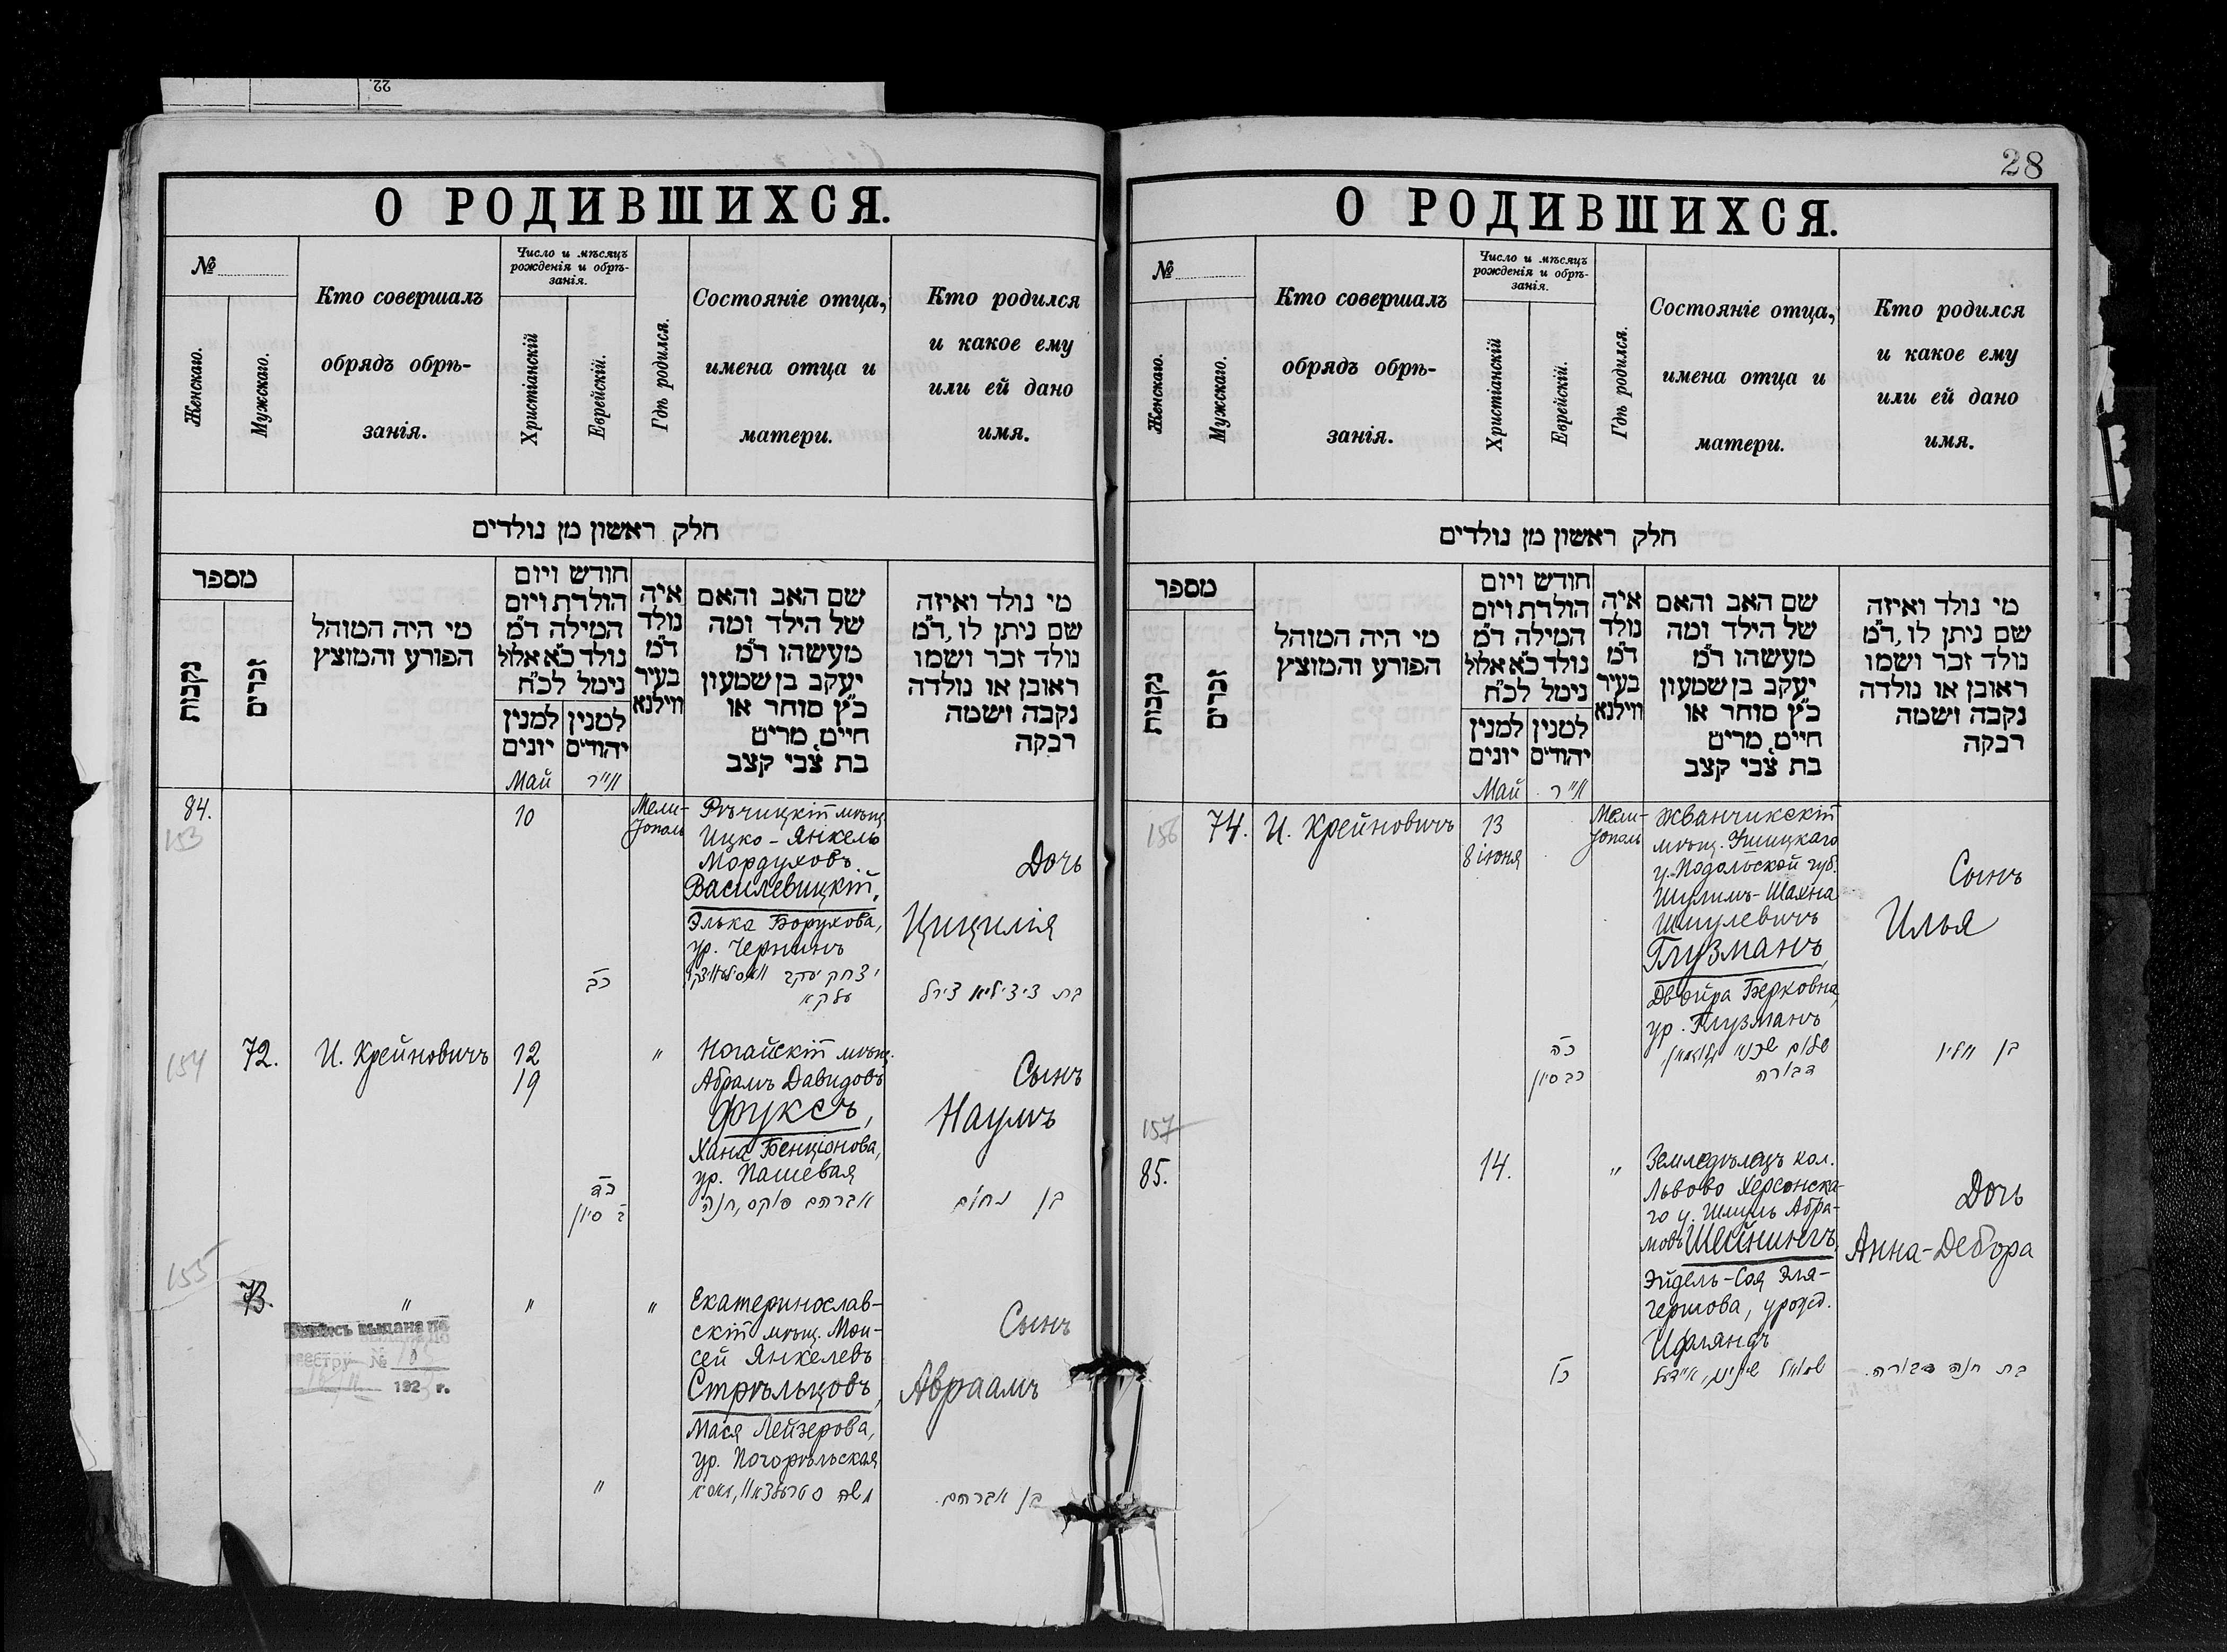 22
О РОДИВШИХСЯ.
№
Женскаго.
Мужскаго.
Кто совершалъ
обрядъ обрѣ-
занія.
Число и мѣсяцъ
рожденія и обрѣ-
занія.
Христіанскій
Еврейскій.
Гдѣ родился.
Состояніе отца,
имена отца и
матери.
Кто родился
и какое ему
или ей дано
имя.
חלק ראשון מן נולדים
מספר
נקבות
זכרים
מי היה המוהל
הפורע והמוצץ
חודש ויום
הולדת ויום
המילה ד"מ
נולד כ"א אלול
נימל לכ"ח
למנין
יונים
למנין
יהודים
איה
נולד
ד"מ
בעיר
ווילנא
שם האב והאם
של הילד ומה
מעשהו ד"מ
יעקב בן שמעון
כ"ץ סוחר או
חייט, מרים
בת צבי קצב
מי נולד ואיזה
שם ניתן לו, ד"מ
נולד זכר ושמו
ראובן או נולדה
נקבה ושמה
רבקה
Май
אייר
84.
153
10
Мели-
тополь
Рѣчицкій мѣщ.
Ицко-Янкель
Мордуховъ
Василевицкій,
Элька Борухова,
ур. Чернинъ
יצחק יעקב
עלקא
כב
Дочь
Цицилія
בת ציציליא צירל
154
72.
И. Крейновичъ
12
19
"
Ногайскій мѣщ.
Абрамъ Давидовъ
Фуксъ,
Хана Бенціонова,
ур. Пашевая
אברהם פוקס, חנה
כד
ב סיון
Сынъ
Наумъ
בן נחום
155
73.
"
"
"
Запись выдана по
реестру №
192 г.
Екатеринослав-
скій мѣщ. Мои-
сей Янкелевъ
Стрѣльцовъ,
Мася Лейзерова,
ур. Погорѣльская
משה סטרעלצאוו, מאסא
"
Сынъ
Авраамъ
בן אברהם.
28
О РОДИВШИХСЯ.
№
Женскаго.
Мужскаго.
Кто совершалъ
обрядъ обрѣ-
занія.
Число и мѣсяцъ
рожденія и обрѣ-
занія.
Христіанскій
Еврейскій.
Гдѣ родился.
Состояніе отца,
имена отца и
матери.
Кто родился
и какое ему
или ей дано
имя.
חלק ראשון מן נולדים
מספר
נקבות
זכרים
מי היה המוהל
הפורע והמוצץ
חודש ויום
הולדת ויום
המילה ד"מ
נולד כ"א אלול
נימל לכ"ח
למנין
יונים
למנין
יהודים
איה
נולד
ד"מ
בעיר
ווילנא
שם האב והאם
של הילד ומה
מעשהו ד"מ
יעקב בן שמעון
כ"ץ סוחר או
חייט, מרים
בת צבי קצב
מי נולד ואיזה
שם ניתן לו, ד"מ
נולד זכר ושמו
ראובן או נולדה
נקבה ושמה
רבקה
Май
אייר
156
74.
И. Крейновичъ
13
8 іюня
Мели-
тополь
Жванчикскій
мѣщ. Ушицкаго
у. Подольской губ.
Шулимъ-Шахна
Шмулевичъ
Глузманъ,
Двойра Берковна,
ур. Глузманъ
שלום שכנא גלוזמאן,
דבורה
כה
כב סיון
Сынъ
Илья
בן אליו
157
85.
14.
"
Земледѣлецъ кол.
Львово Херсонска-
го у. Шмуль Абра-
мовъ Шейнингъ,
Эйдель-Соя Эля-
Гершова, урожд.
שמואל שיינינג, איידעל
כו
Дочь
Анна-Дебора
בת חנה דבורה.